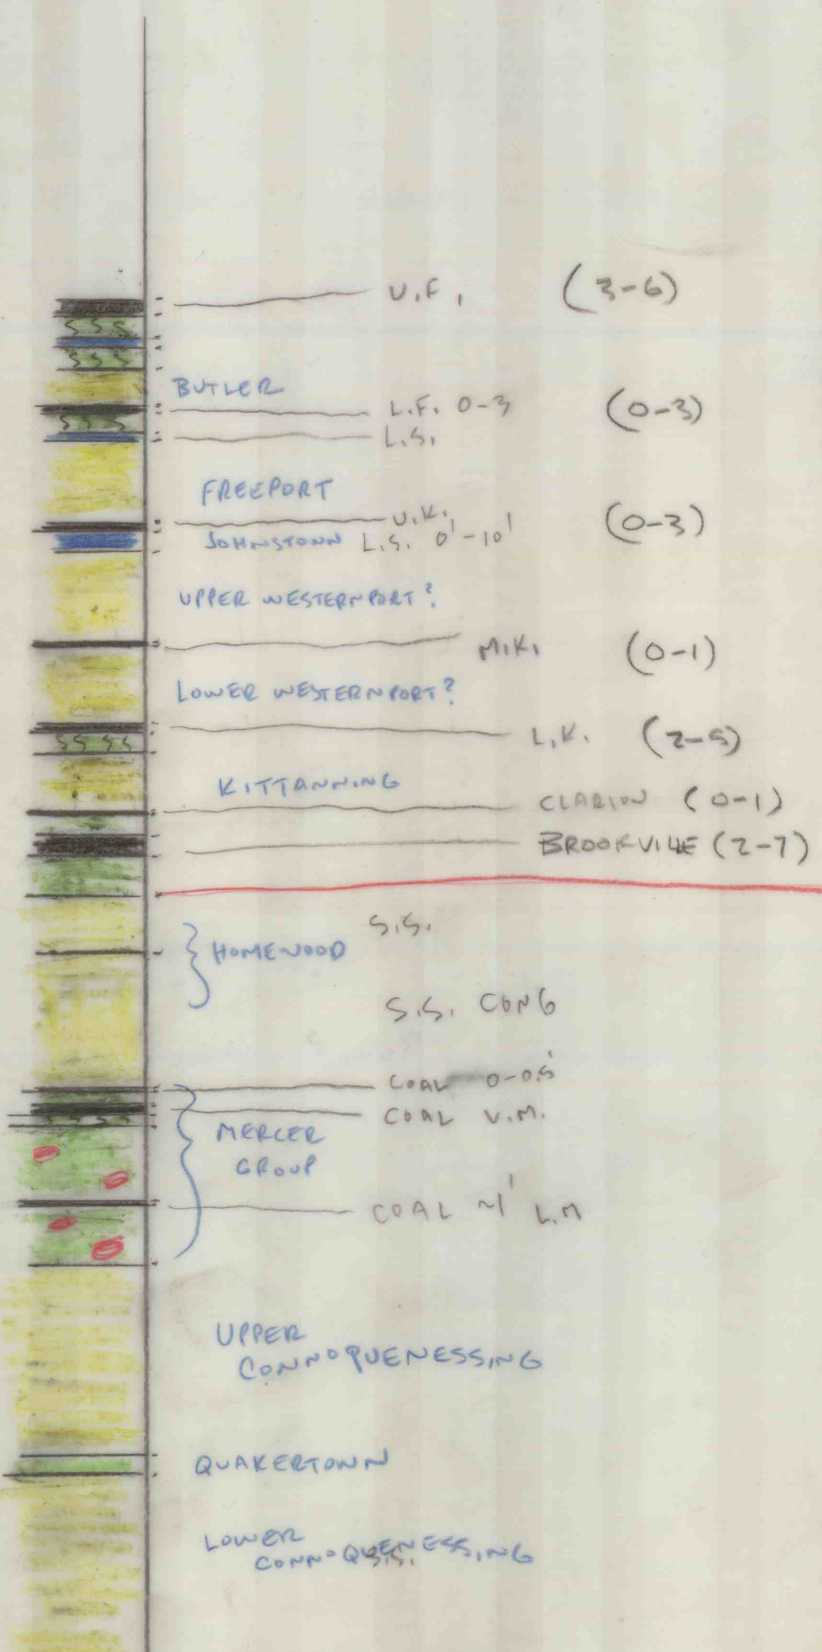 U.F. (3-6)
BUTLER
L.F. 0-3 (0-3)
L.S.
FREEPORT
U.K. (0-3)
JOHNSTOWN L.S. 0'-10'
UPPER WESTERNPORT?
M.K. (0-1)
LOWER WESTERNPORT?
L.K. (2-5)
KITTANNING
CLARION (0-1)
BROOKVILLE (2-7)
S.S.
HOMEWOOD
S.S. CONG
COAL 0-0.5'
COAL U.M.
MERCER
GROUP
COAL ~1' L.M
UPPER
CONNOQUENESSING
QUAKERTOWN
LOWER
CONNOQUENESSING
S.S.